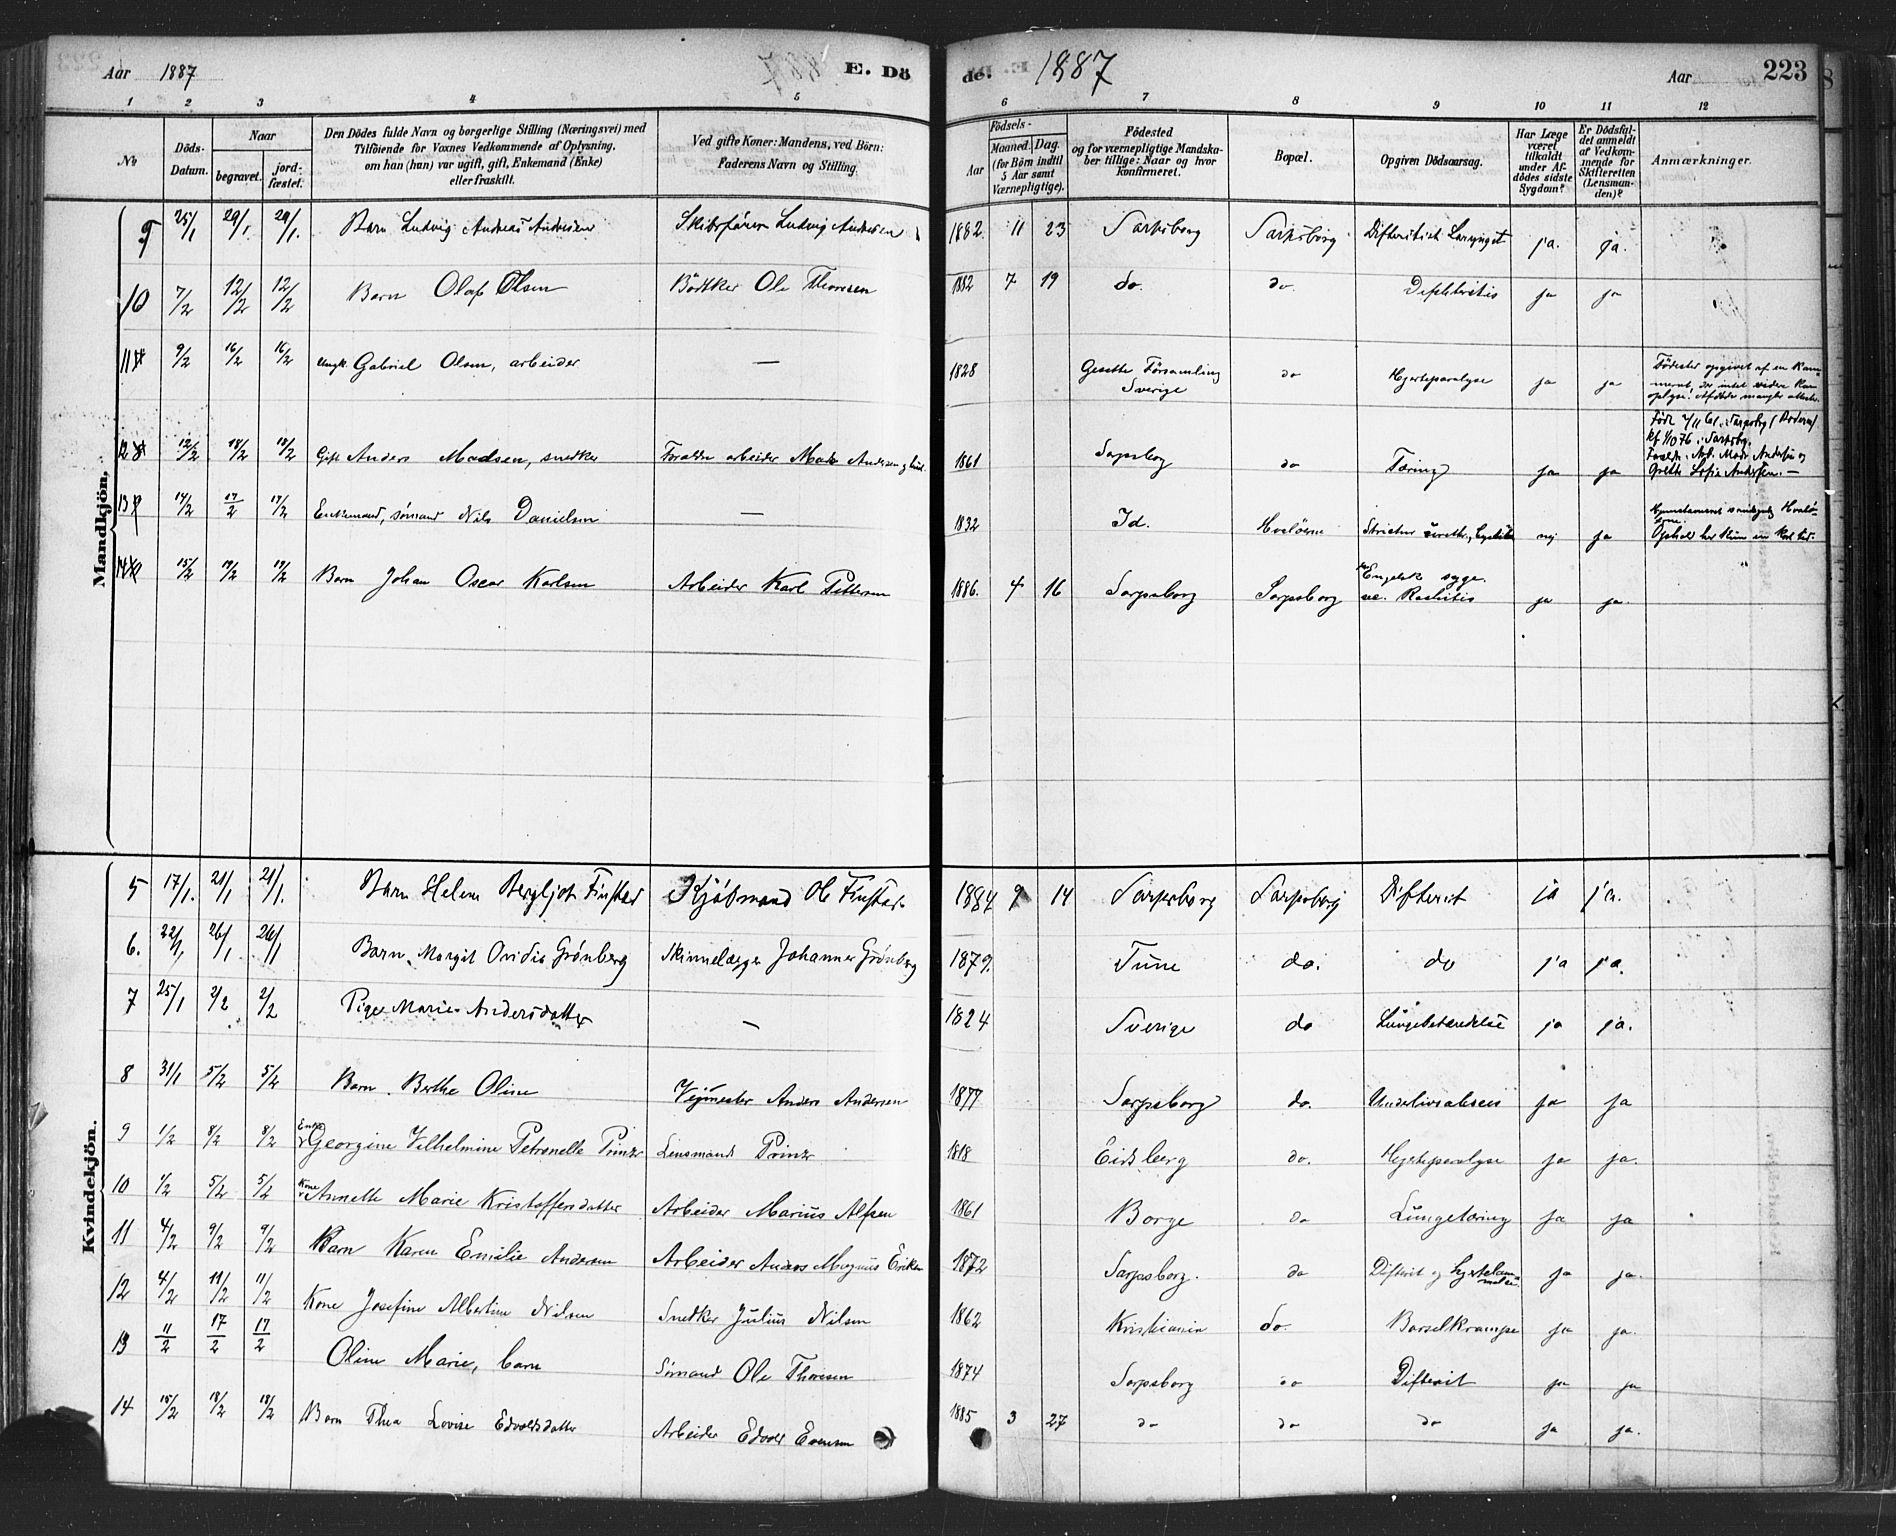 Aar 1887 E. Dö
de. 1887 Aar 223
1 2 3 4 5 6 7 8 9 10 11 12
No
Döds-Datum.
Naar
begravet.
jord-fæstet.
Den Dödes fulde Navn og borgerlige Stilling (Næringsvei) med
Tilföiende for Voxnes Vedkommende af Oplysning.
om han (hun) var ugift, gift, Enkemand (Enke)
eller fraskilt.
Ved gifte Koner: Mandens, ved Börn:
Faderens Navn og Stilling.
Födsels-
Aar
Maaned. Dag.
(for Börn indtil
5 Aar samt
Værnepligtige).
Födested
og for værnepligtige Mandska-
ber tillige: Naar og hvor
konfirmeret.
Bopæl.
Opgiven Dödsaarsag.
Har Læge
været
tilkaldt
under Af-
dödes sidste
Sygdom?
Er Dödsfal-
det anmeldt
af Vedkom-
mende for
Skifteretten
(Lensman-
den)?
Anmærkninger.
Mandkjön.
9 25/1 29/1. 29/1. Barn Ludvig Andreas Andresen Skibsfører Ludvig Andresen 1882. 11 23 Sarpsborg Sarpsborg Difteritisk Laryngit ja. ja.
10 7/2 12/2 12/2 Barn Olaf Olsen Bödtker Ole Thoresen 1882 7 19 do. do. Difhteritis ja ja
11 9/2 16/2 16/2 Ungk. Gabriel Olsen, arbeider — 1828 Gesette Församling Sverige do Hjerteparalyse ja ja
Födested opgivet af en Kam-
merat, der intet videre kan
oplyse.
12 12/2 18/2 18/2 Gift Anders Madsen, snedker Forældre arbeider Mads Andersen 1861 Sarpsborg do Tæring ja ja
13 14/2 17/2 17/2 Enkemand, sømand Nils Danielsen — 1832 Id. Hvaløerne Strictur urethr., nej ja
14 15/2 19/2 19/2 Barn Johan Oscar Karlsen Arbeider Karl Pettersen 1886. 4 16 Sarpsborg Sarpsborg Engelsk syge. Rachitis ja ja.
Kvindekjön.
5 17/1. 21/1 21/1. Barn Helene Bergljot Finstad Kjöbmand Ole Finstad 1884 9 14 Sarpsborg Sarpsborg Difterit ja ja.
6. 22/1 26/1 26/1 Barn. Margit Ovidia Grønberg Skinnelægger Johannes Grønberg 1879. Tune do. do ja ja.
7 25/1 2/2 2/2 Pige Marie Andersdatter — 1824 Sverige do Lungebetændelse ja ja.
8 31/1 5/2 5/2 Barn. Berthe Oline Vejmester Anders Andersen 1877 Sarpsborg do. Underlivsabsces ja ja
9 1/2 8/2 8/2 Enke Georgine Vilhelmine Petronelle Prinz Lensmand Prinz 1818 Eidsberg do. Hjerteparalyse ja ja.
10 1/2 5/2 5/2 Kone Annette Marie Kristoffersdatter Arbeider Marius Alfsen 1861 Borge do Lungetæring ja ja
11 4/2 9/2 9/2 Barn Karen Emilie Andersen Arbeider Anders Magnus Eriksen 1872 Sarpsborg. do Difterit og ja ja.
12 4/2 11/2 11/2 Kone Josefine Albertine Nilsen Snedker Julius Nilsen 1862 Kristiania do. Barselkrampe ja ja.
13 11/2 17/2 17/2 Oline Marie, barn Sømand Ole Thoresen 1874 Sarpsborg do Difterit ja ja
14 15/2 18/2 18/2 Barn Thea Lovise Edvardsdatter Arbeider Edvard Evensen 1885 3 27 do do do ja ja.